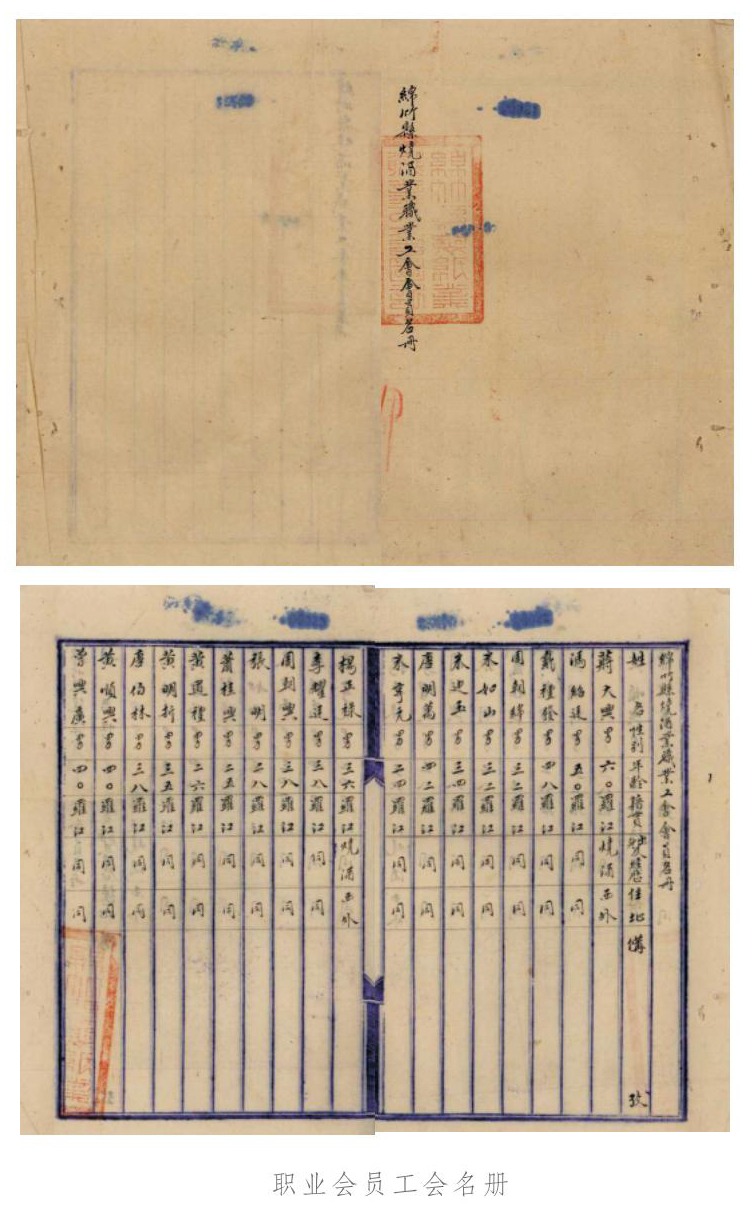 綿竹縣燒酒業職業工會會員名冊
綿竹縣燒酒業職業工會會員名冊
姓名 性別 年齡 籍貫 經歷 住地 備 攷
蔣大興 男 六〇 羅江 燒酒 西外
馮紹廷 男 五〇 羅江 同 同
戴禮發 男 四八 羅江 同 同
周朝緯 男 三二 羅江 同 同
秦如山 男 三二 羅江 同 同
秦述玉 男 三四 羅江 同 同
唐明萬 男 四二 羅江 同 同
秦享先 男 二四 羅江 同 同
楊正祿 男 三六 羅江 燒酒 西外
李耀廷 男 三八 羅江 同 同
周朝興 男 三八 羅江 同 同
張明 男 二八 羅江 同 同
蕭桂興 男 二五 羅江 同 同
黃道禮 男 二六 羅江 同 同
黃明 男 三五 羅江 同 同
唐伯林 男 三八 羅江 同 同
黃順興 男 四〇 羅江 同 同
曾興廣 男 四〇 羅江 同 同
职业会员工会名册